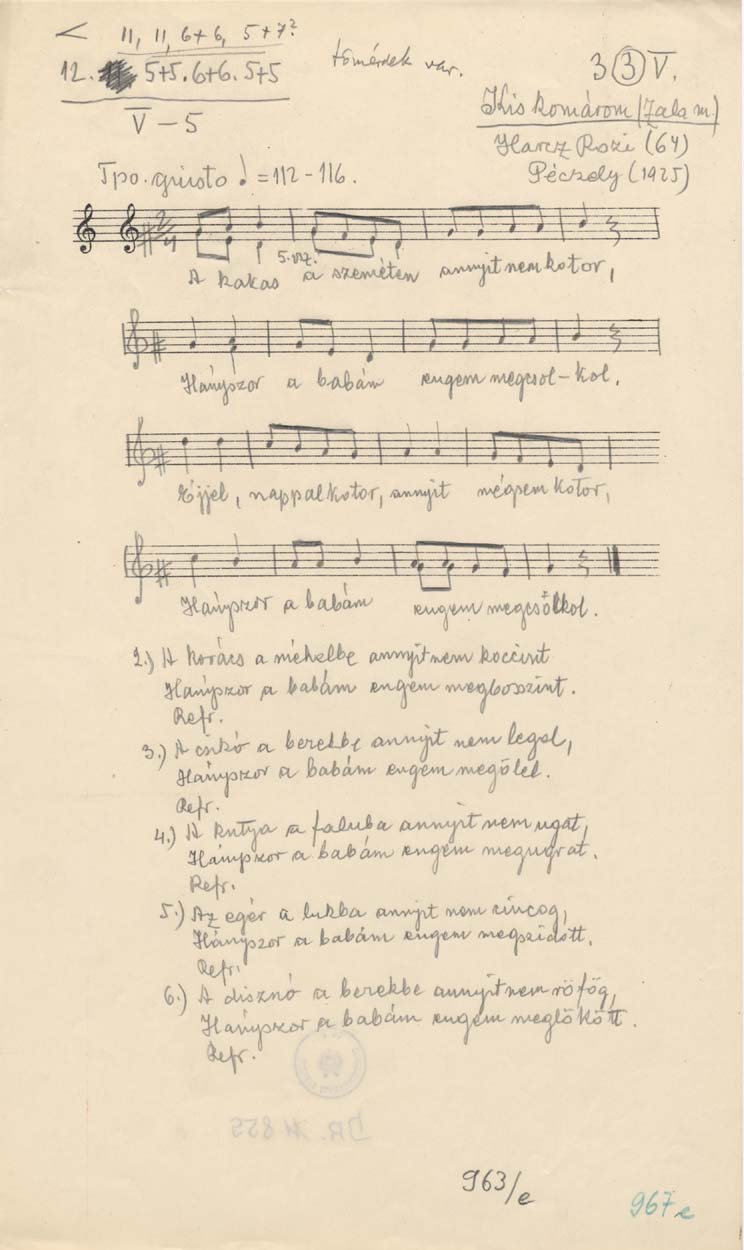 < 11, 11, 6+6, 5+7?
12. 5+5. 6+6. 5+5
V – 5
tömérdek var.
3 3 V.
Kiskomárom (Zala m.)
Harcz Rozi (64)
Péczely (1925)
Tpo. giusto ♩ = 112 – 116.
2/4
5. vsz.
A kakas a szeméten annyit nem kotor,
Hányszor a babám engem megcsol-kol.
Éjjel, nappal kotor, annyit mégsem kotor,
Hányszor a babám engem megcsólkol.
2.) A kovács a méhelbe annyit nem koccint
Hányszor a babám engem megboszint.
Refr.
3.) A csikó a berekbe annyit nem legel,
Hányszor a babám engem megölel.
Refr.
4.) A kutya a faluba annyit nem ugat,
Hányszor a babám engem megugrat.
Refr.
5.) Az egér a lukba annyit nem cincog,
Hányszor a babám engem megszidott.
Refr.
6.) A disznó a berekbe annyit nem röfög,
Hányszor a babám engem meglökött.
Refr.
963/e
967 e